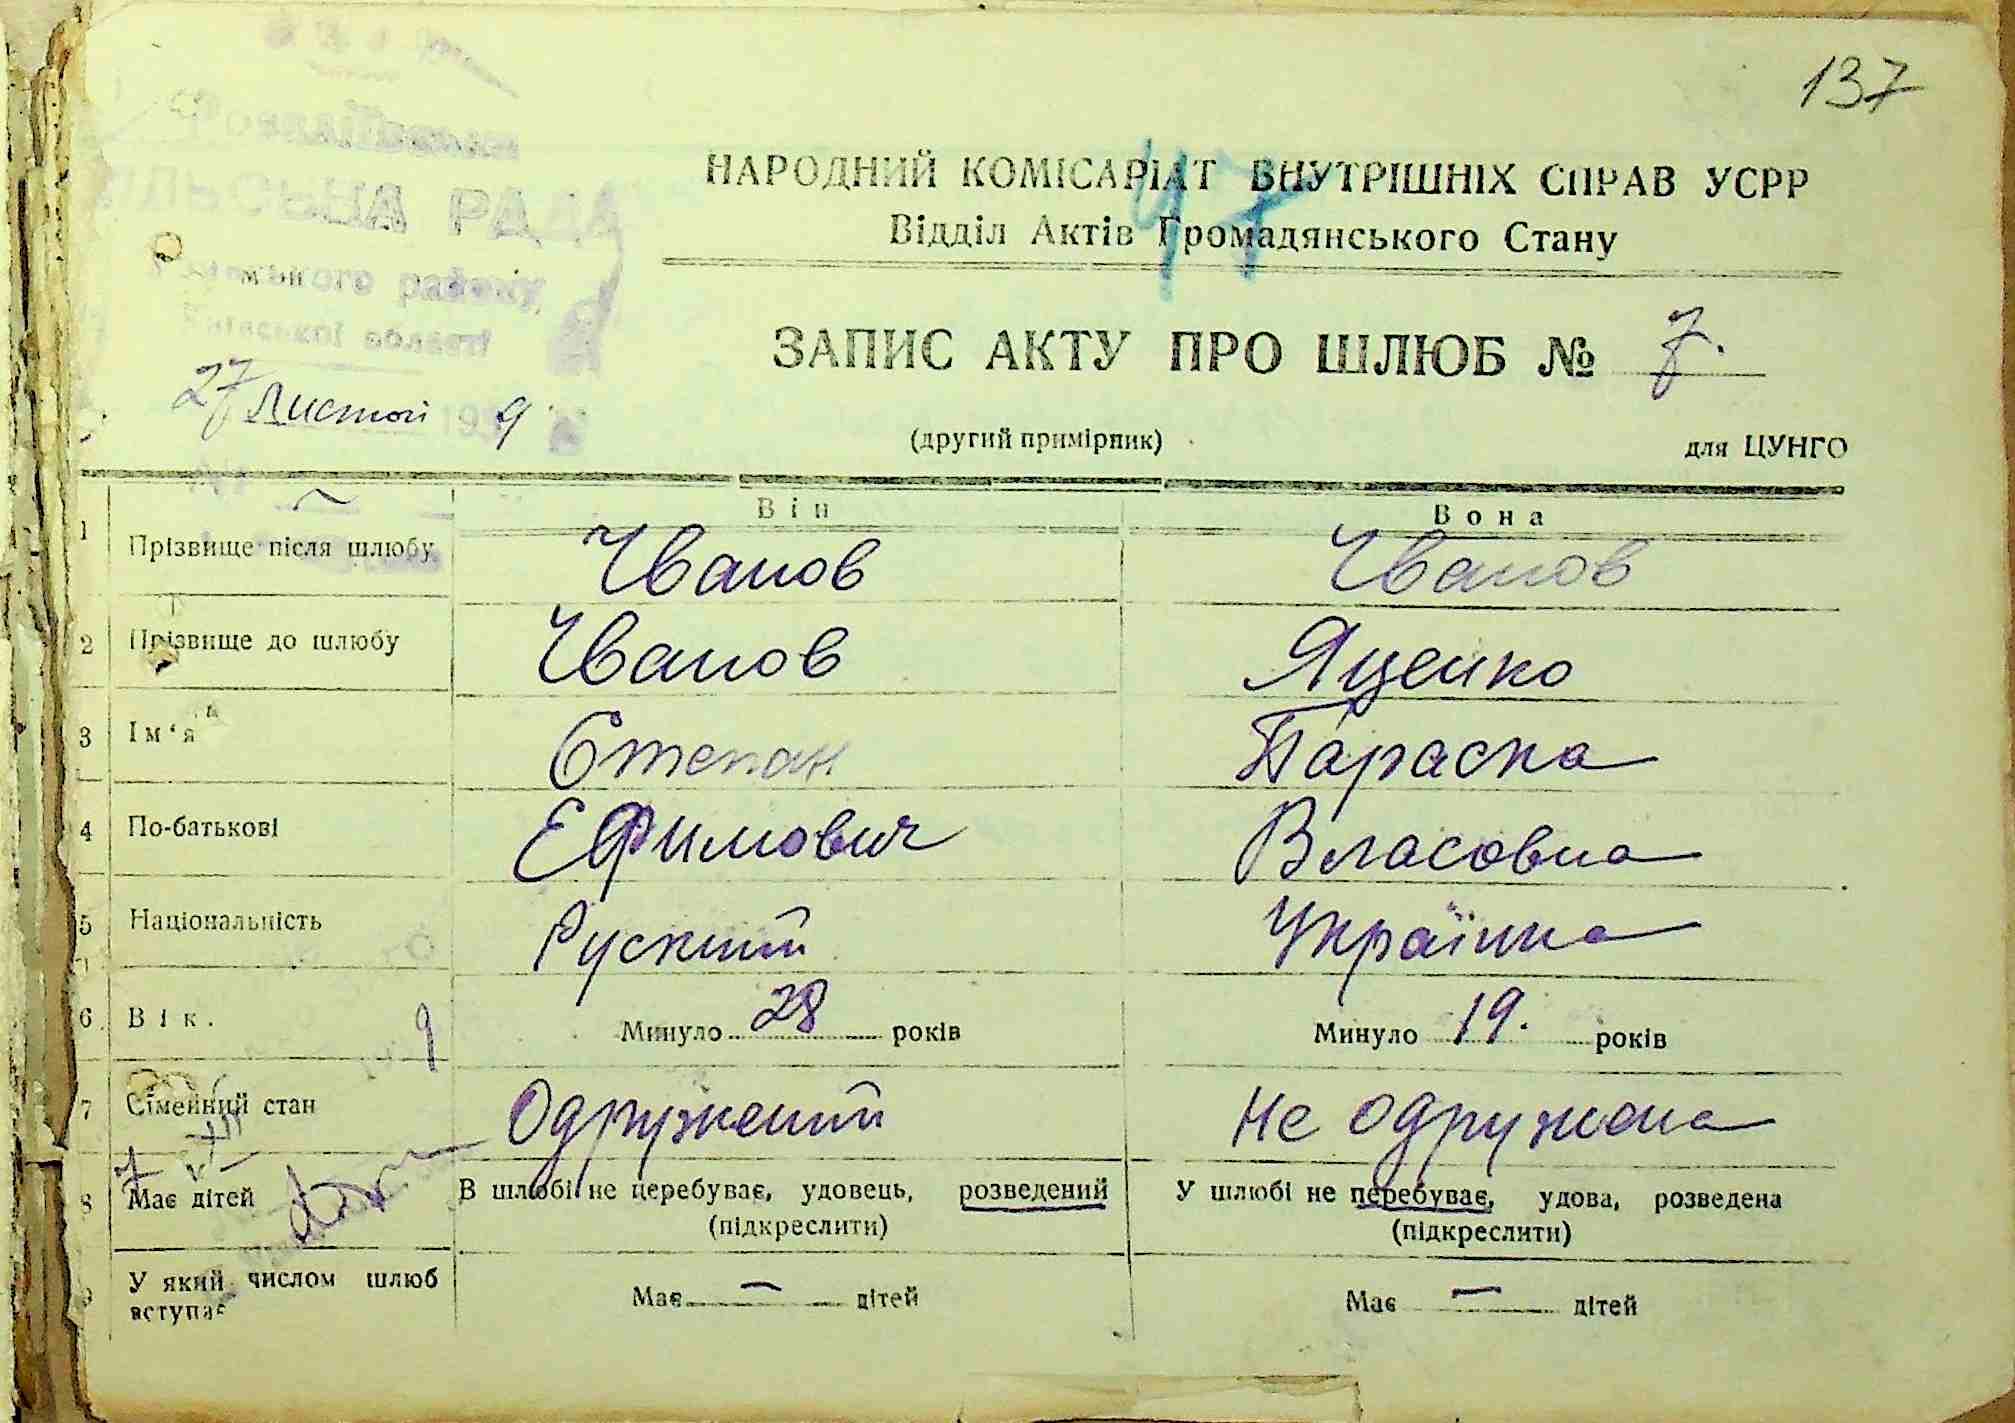 137
НАРОДНИЙ КОМІСАРІАТ ВНУТРІШНІХ СПРАВ УСРР
47
Відділ Актів Громадянського Стану
СІЛЬСЬКА РАДА
району,
Київської області
ЗАПИС АКТУ ПРО ШЛЮБ № 7.
27 Листоп 193 9
(другий примірник)
для ЦУНГО
Він Вона
1 Прізвище після шлюбу Іванов Іванов
2 Прізвище до шлюбу Іванов Яценко
3 Ім'я Степан Параска
4 По-батькові Ефимович Власовна
5 Національність Руский Українка
6. Вік. 9 Минуло 28 років Минуло 19. років
7 Сімейний стан Одружений Не одружена
8 Має дітей В шлюбі не перебуває, удовець, розведений У шлюбі не перебуває, удова, розведена
(підкреслити) (підкреслити)
9 У який числом шлюб вступає Має — дітей Має — дітей